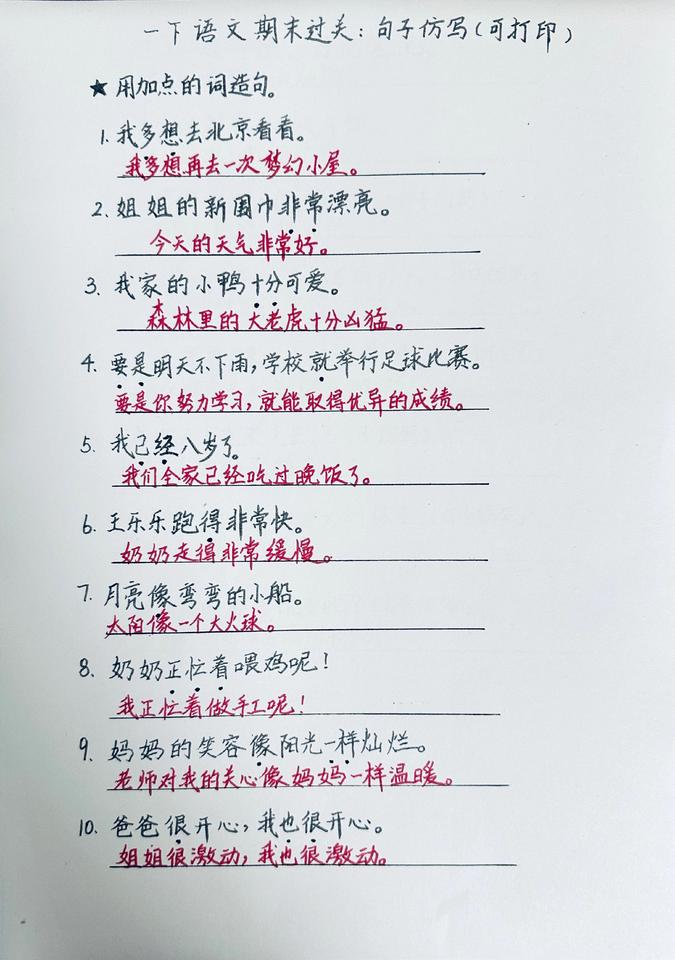 一下语文期末过关：句子仿写(可打印)
★用加点的词造句。
1. 我多想去北京看看。
我多想再去一次梦幻小屋。
2. 姐姐的新围巾非常漂亮。
今天的天气非常好。
3. 我家的小鸭十分可爱。
森林里的大老虎十分凶猛。
4. 要是明天不下雨，学校就举行足球比赛。
要是你努力学习，就能取得优异的成绩。
5. 我已经八岁了。
我们全家已经吃过晚饭了。
6. 王乐乐跑得非常快。
奶奶走得非常缓慢。
7. 月亮像弯弯的小船。
太阳像一个大火球。
8. 奶奶正忙着喂鸡呢！
我正忙着做手工呢！
9. 妈妈的笑容像阳光一样灿烂。
老师对我的关心像妈妈一样温暖。
10. 爸爸很开心，我也很开心。
姐姐很激动，我也很激动。